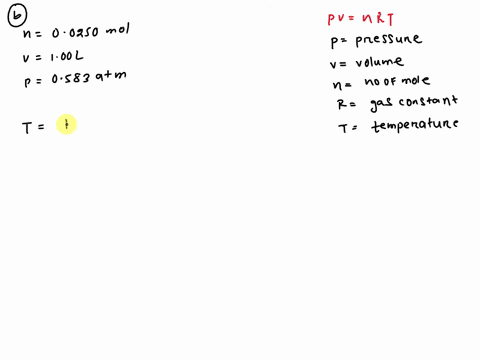 b
n = 0.0250 mol
v = 1.00L
p = 0.583 atm
T =
PV = nRT
p = pressure
v = volume
n = no of mole
R = gas constant
T = temperature